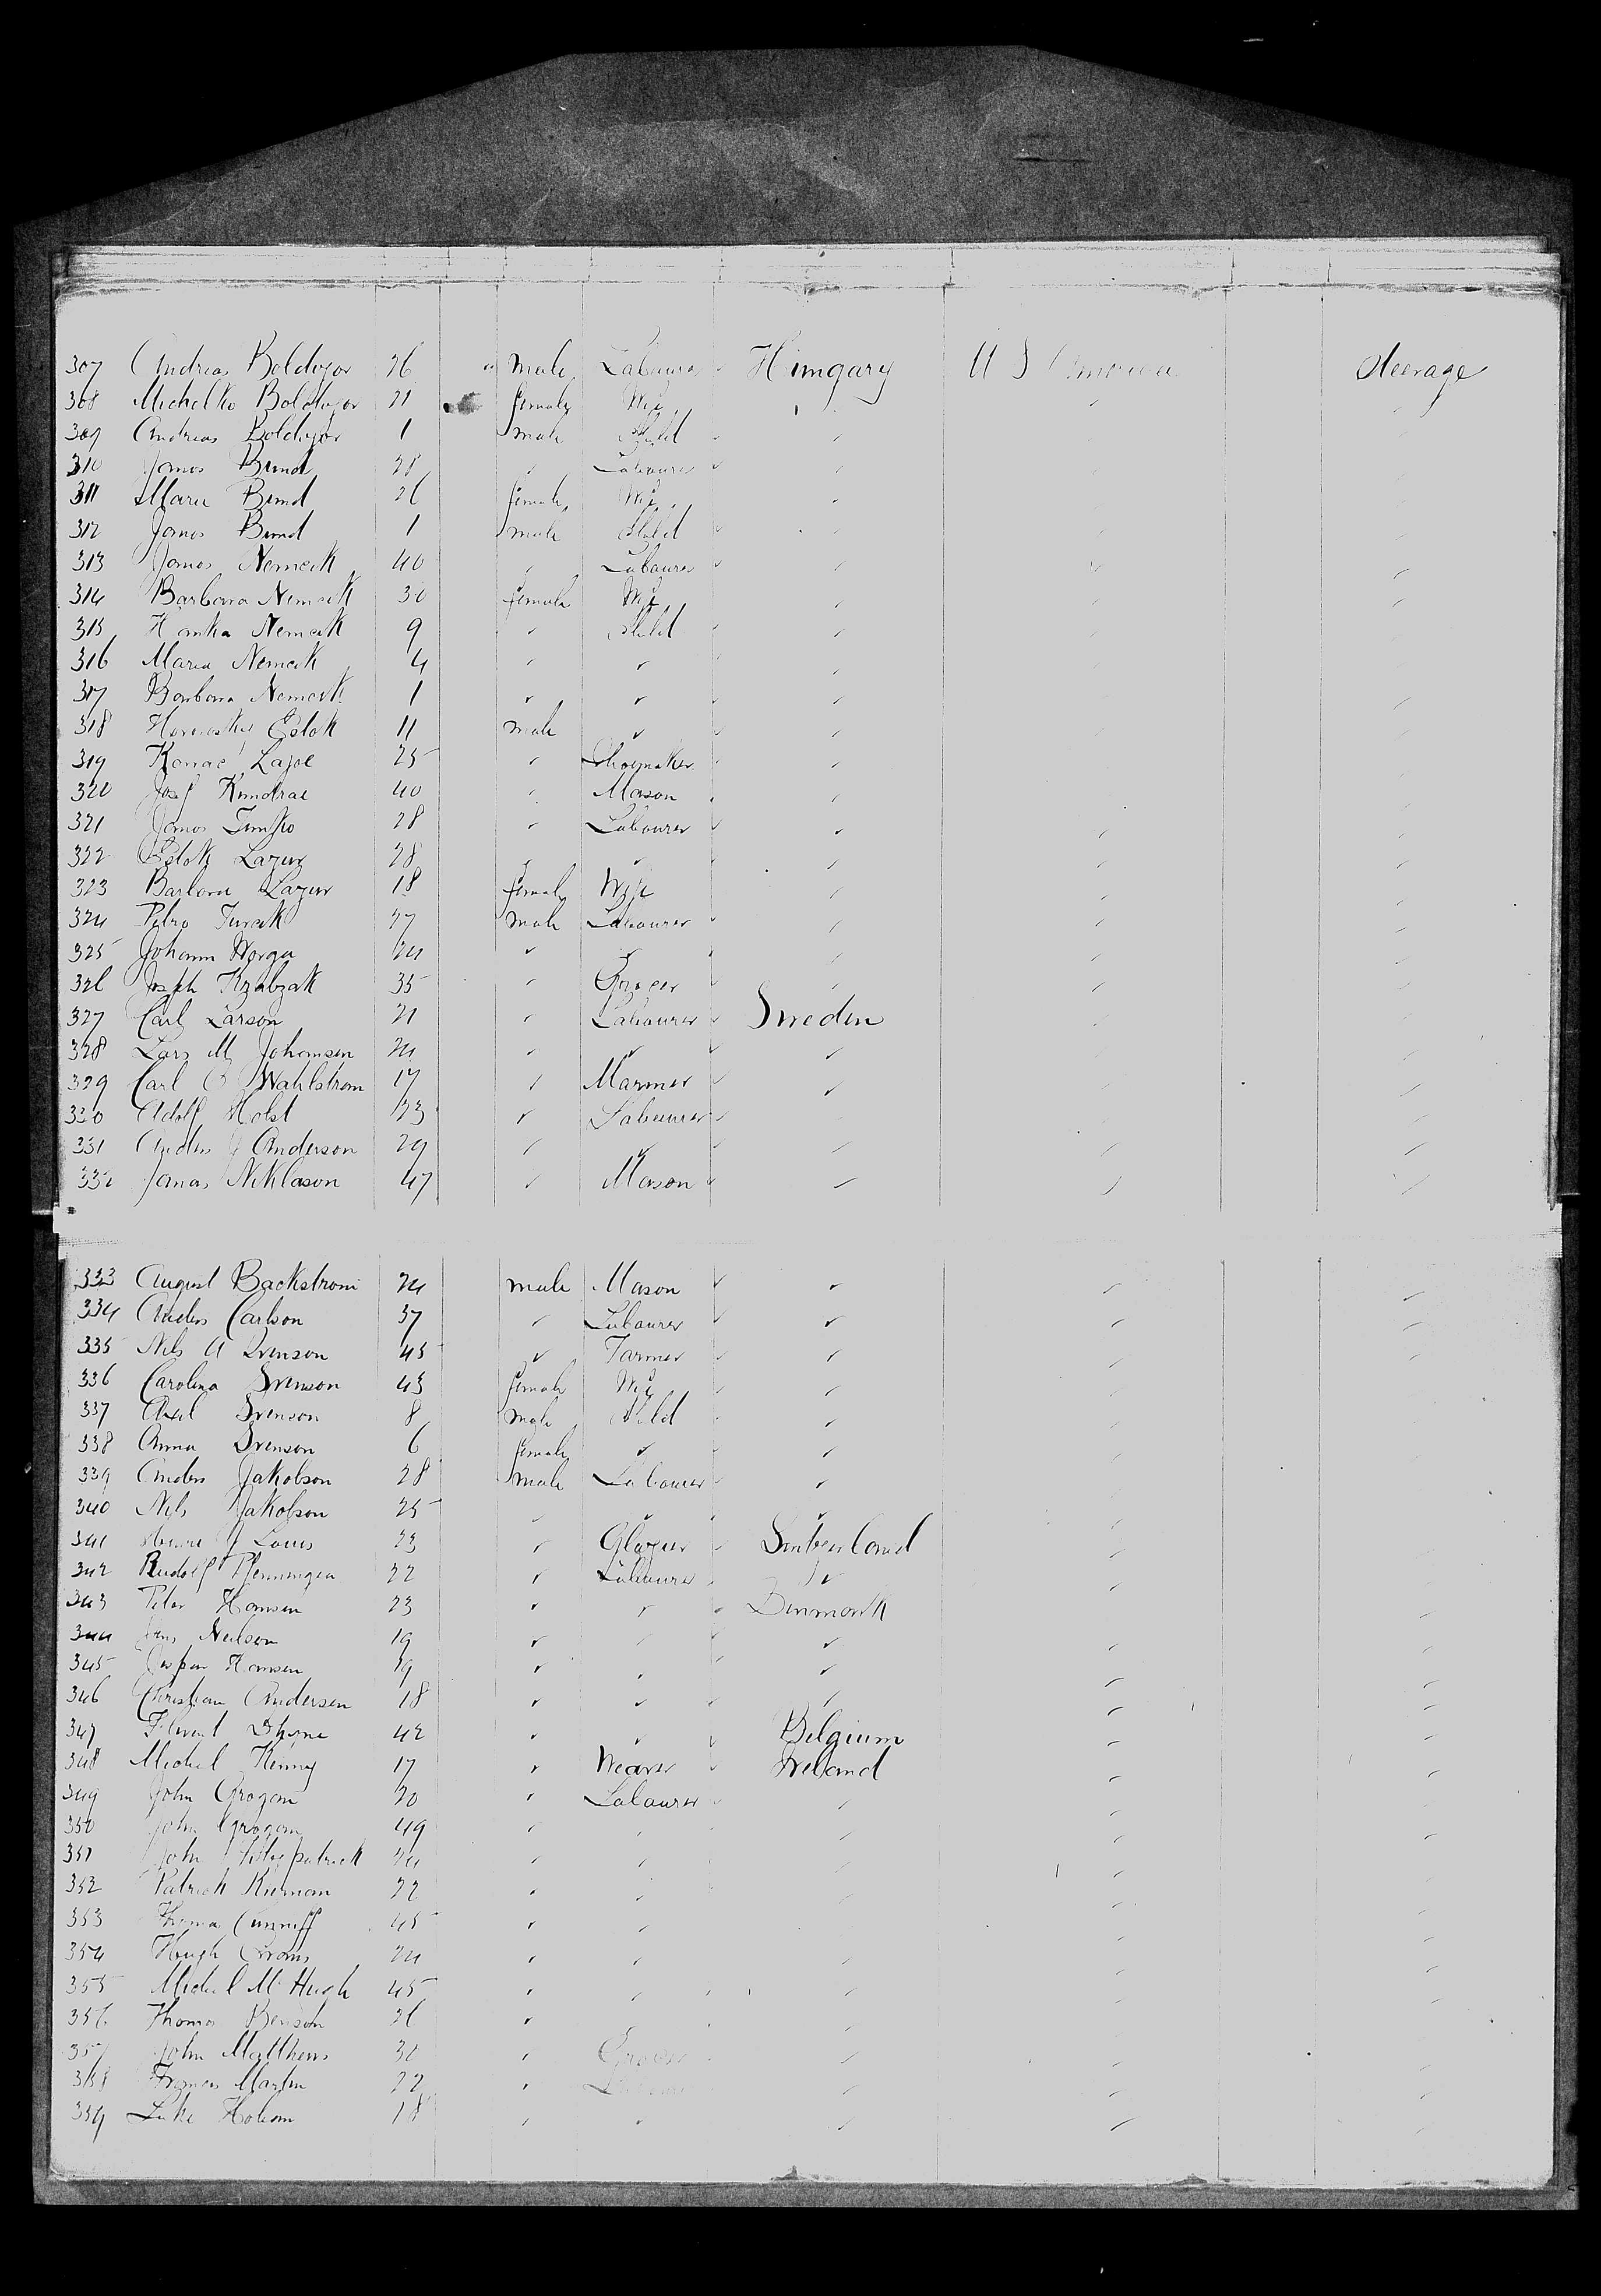 307 Andreas Boldvjor 26 male Labourer Hungary U S America steerage
308 Michelko Boldvjor 21 female Wife
309 Andreas Boldvjor 1 male Child
310 Janos Bund 28 ✓ Labourer
311 Maria Bund 26 female Wife
312 Janos Bund 1 male Child
313 Janos Nemcik 40 ✓ Labourer
314 Barbara Nemcik 30 female Wife
315 Hanka Nemcik 9 ✓ Child
316 Maria Nemcik 4 ✓ ✓
317 Barbara Nemcik 1 ✓ ✓
318 Estok 11 male ✓
319 Lajoe 25 ✓ Shoemaker
320 Josef Kundrac 40 ✓ Mason
321 Janos Timko 28 ✓ Labourer
322 Estok Lazur 28 ✓ ✓
323 Barbara Lazur 18 female Wife
324 Petro Turcik 27 male Labourer
325 Johann Worga 24 ✓ ✓
326 Joseph Krabzak 35 ✓ Grocer
327 Carl Larson 21 ✓ Labourer Sweden
328 Lars M Johansen 24 ✓ ✓ ✓
329 Carl O Wahlstrom 17 ✓ Marmer ✓
330 Adolf Holst 23 ✓ Labourer
331 Anders J Anderson 29 ✓ ✓ ✓
332 Jonas Niklason 47 ✓ Mason ✓
333 August Backstrom 24 male Mason ✓
334 Anders Carlson 37 ✓ Labourer ✓
335 Nils A Svenson 45 ✓ Farmer ✓
336 Carolina Svenson 43 female Wife ✓
337 Axel Svenson 8 male Child ✓
338 Anna Svenson 6 female ✓ ✓
339 Anders Jakobson 28 male Labourer ✓
340 Nils Jakobson 25 ✓ ✓ ✓
341 J Louis 23 ✓ Glazier Switzerland
342 Rudolf Henninger 22 ✓ Labourer ✓
343 Peter Hansen 23 ✓ ✓ Denmark
344 Jens Neilson 19 ✓ ✓ ✓
345 Jesper Hansen 19 ✓ ✓ ✓
346 Christian Andersen 18 ✓ ✓ ✓
347 Florent Dhyne 42 ✓ ✓ Belgium
348 Michael Kenny 17 ✓ Weaver Ireland
349 John Grogan 20 ✓ Labourer ✓
350 John Grogan 49 ✓ ✓ ✓
351 John Fitzpatrick 24 ✓ ✓
352 Patrick Kiernan 22 ✓ ✓ ✓
353 Thomas Cunniff 45 ✓ ✓
354 Hugh 24 ✓ ✓ ✓
355 Michael McHugh 45 ✓ ✓ ✓
356 Thomas Benson 26 ✓ ✓ ✓
357 John Matthews 30 ✓ Grocer ✓
358 Frances Martin 22 ✓ Labourer ✓
359 Luke Hoban 18 ✓ ✓ ✓